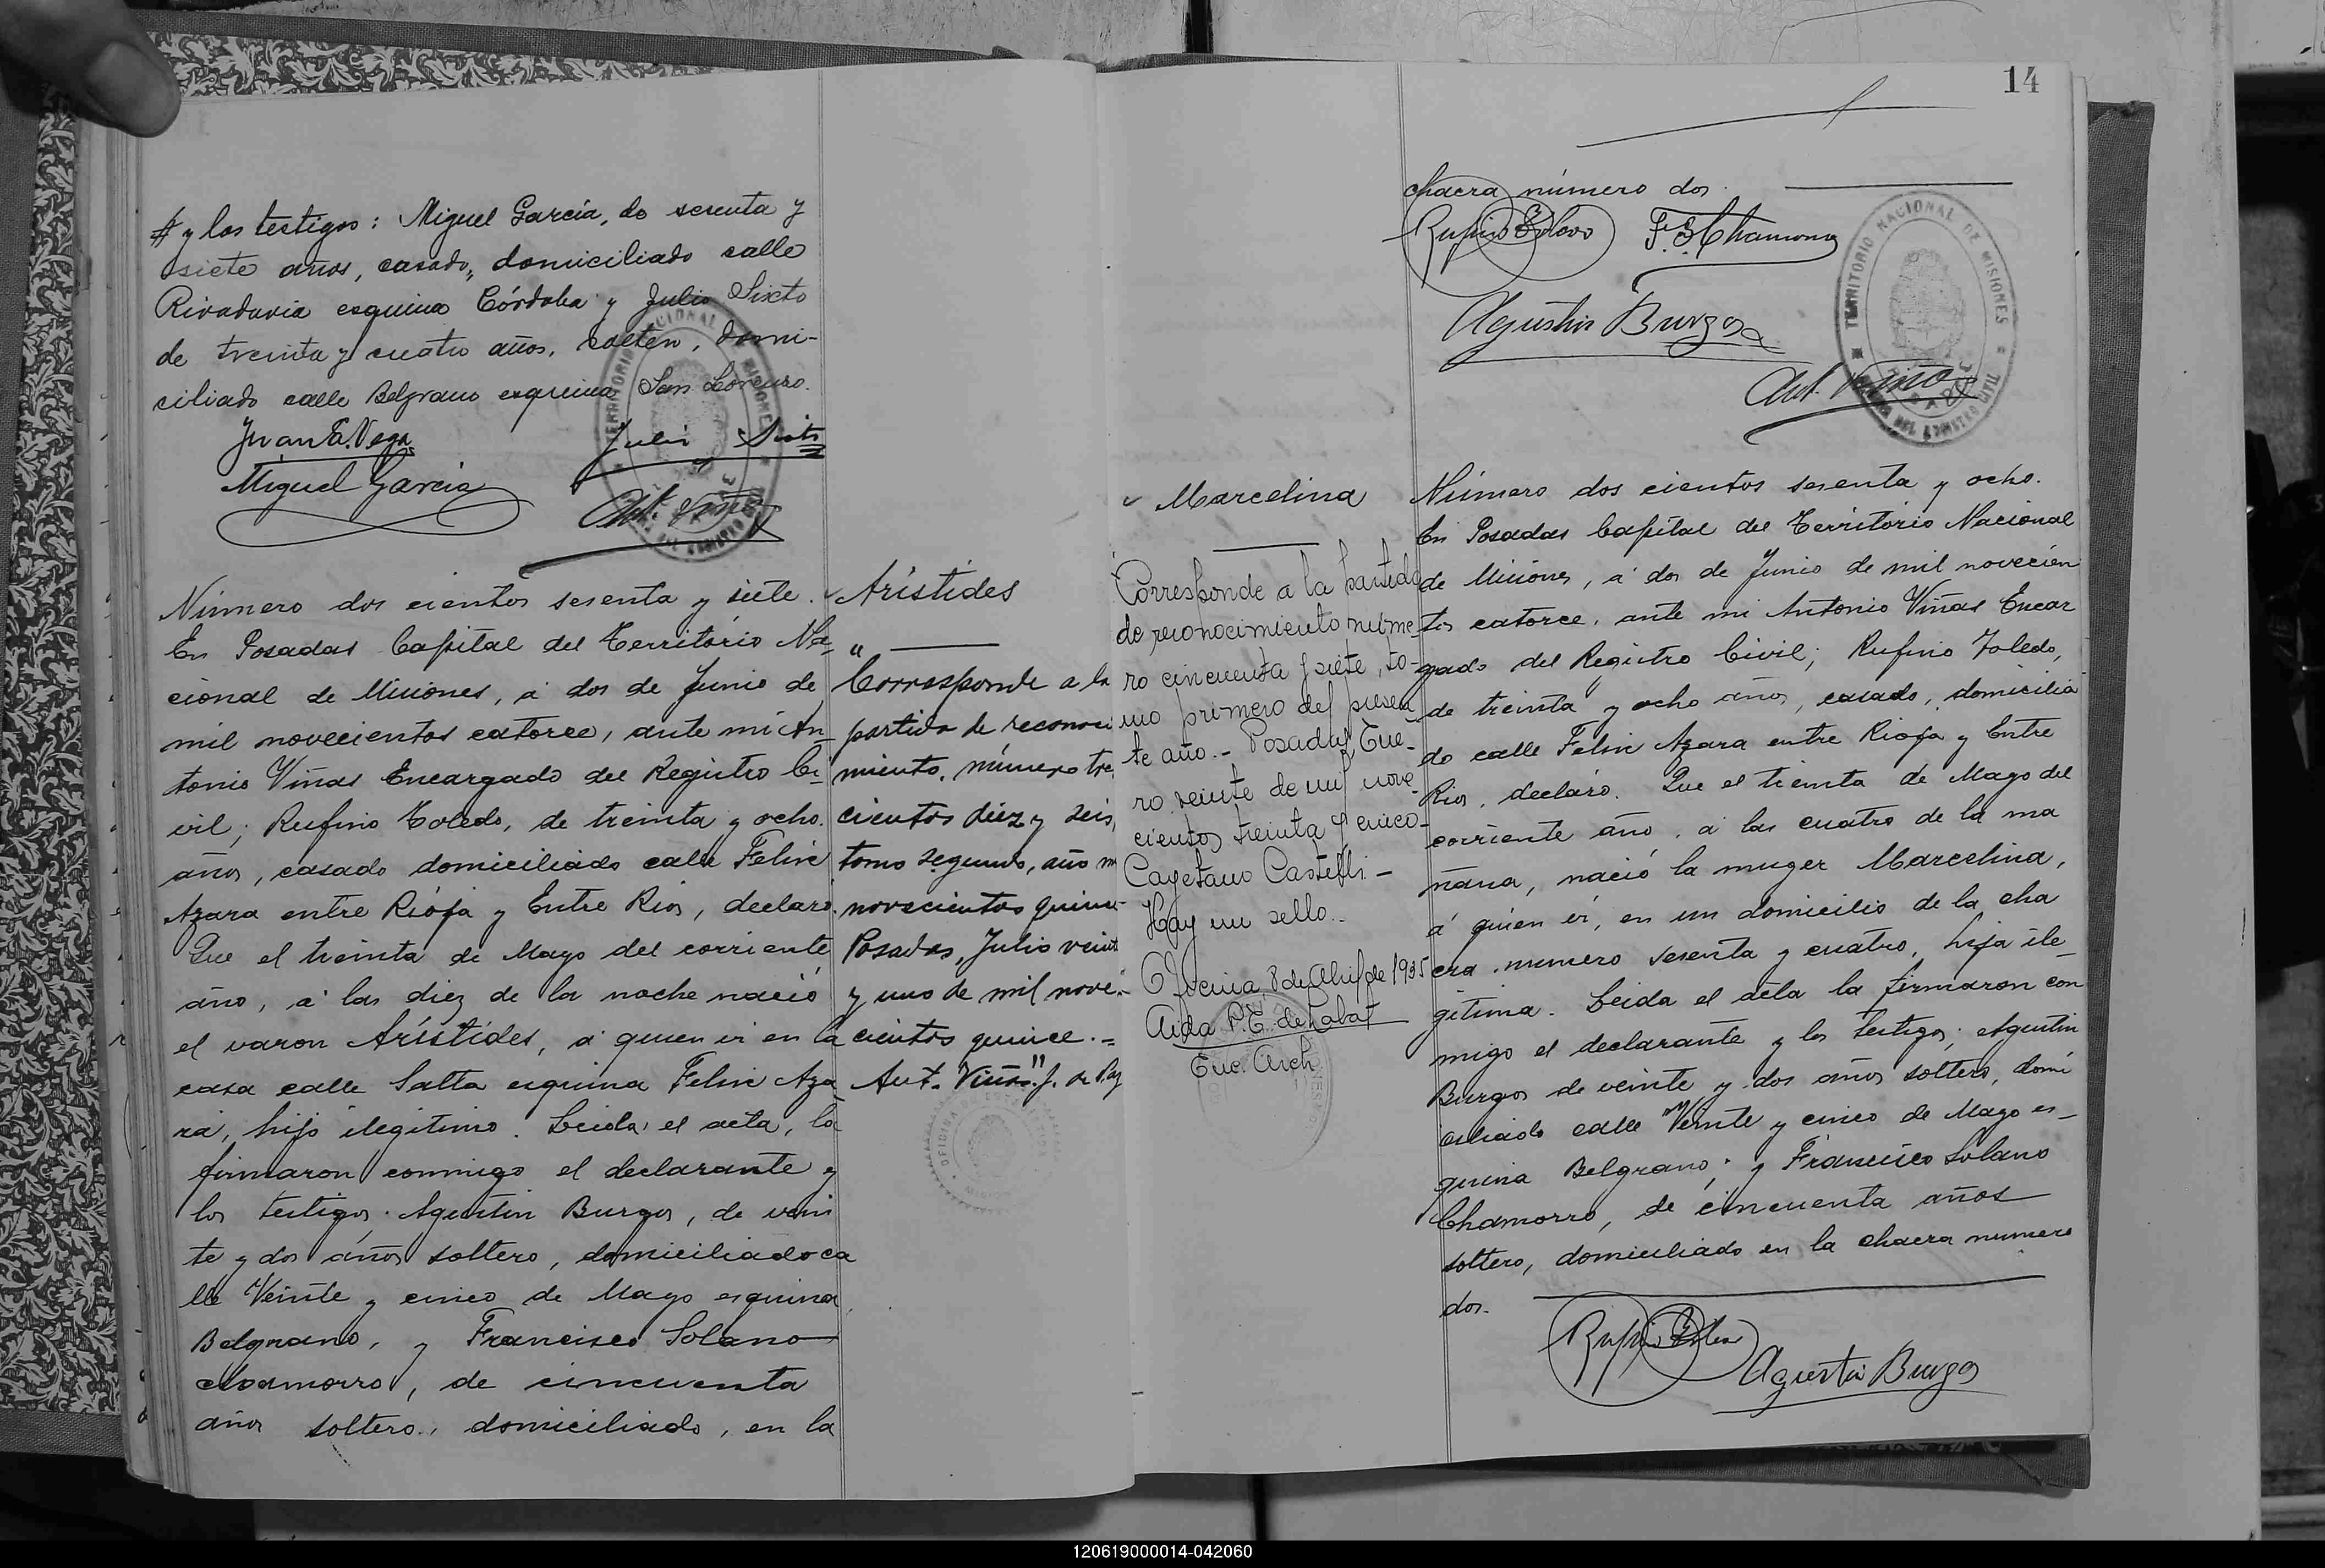 # y los testigos: Miguel García, de sesenta y
siete años, casado, domiciliado calle
Rivadavia esquina Córdoba y Julio Sixto
de treinta y cuatro años, soltero, domi-
ciliado calle Belgrano esquina San Lorenzo.
Juan E. Vega
Julio Sixto
Miguel Garcia
Ant. Viñas
Número dos cientos sesenta y siete.
En Posadas Capital del Territorio Na-
cional de Misiones, á dos de Junio de
mil novecientos catorce, ante mi An-
tonio Viñas Encargado del Registro Ci-
vil; Rufino Toledo, de treinta y ocho
años, casado domiciliado calle Felix
Azara entre Rioja y Entre Rios, declaró.
Que el treinta de Mayo del corriente
año, á las diez de la noche nació
el varon Arístides, á quien vi en la
casa calle Salta esquina Felix Aza
ra, hijo ilegitimo. Leida el acta, la
firmaron conmigo el declarante y
los testigos. Agustin Burgos, de vein
te y dos años soltero, domiciliado ca
lle Veinte y cinco de Mayo esquina
Belgrano, y Francisco Solano
Chamorro, de cincuenta
años soltero, domiciliado, en la
Arístides
"
Corresponde a la
partida de reconoci
miento, número tre
cientos diez y seis,
tomo segundo, año m
novecientos quince-
Posadas, Julio veint
y uno de mil nove-
cientos quince.-
Ant. Viñas" J. de Paz
14
chacra número dos.
Rufino Toledo F. S. Chamorro
Agustin Burgos
TERRITORIO NACIONAL DE MISIONES
Ant. Viñas
Marcelina
Corresponde a la partida
de reconocimiento núme
ro cincuenta y siete, to-
mo primero del presen
te año.- Posadas, Ene-
ro veinte de mil nove-
cientos treinta y cinco-
Cayetano Castelli-
Hay un sello.-
Oficina 8 de Abril de 1935
Aida P. T. de Labat
Enc. Arch
Número dos cientos sesenta y ocho.
En Posadas Capital del Territorio Nacional
de Misiones, á dos de Junio de mil novecien
tos catorce, ante mi Antonio Viñas Encar
gado del Registro Civil; Rufino Toledo,
de treinta y ocho años, casado, domicilia
do calle Felix Azara entre Rioja y Entre
Rios, declaró. Que el treinta de Mayo del
corriente año, á las cuatro de la ma
ñana, nació la muger Marcelina,
á quien vi, en un domicilio de la cha
cra numero sesenta y cuatro, hija ile-
gitima. Leida el acta la firmaron con
migo el declarante y los testigos; Agustin
Burgos de veinte y dos años soltero, domi
ciliado calle Veinte y cinco de Mayo es-
quina Belgrano; y Francisco Solano
Chamorro, de cincuenta años
soltero, domiciliado en la chacra numero
dos.
Rufino Toledo
Agustin Burgos
120619000014-042060